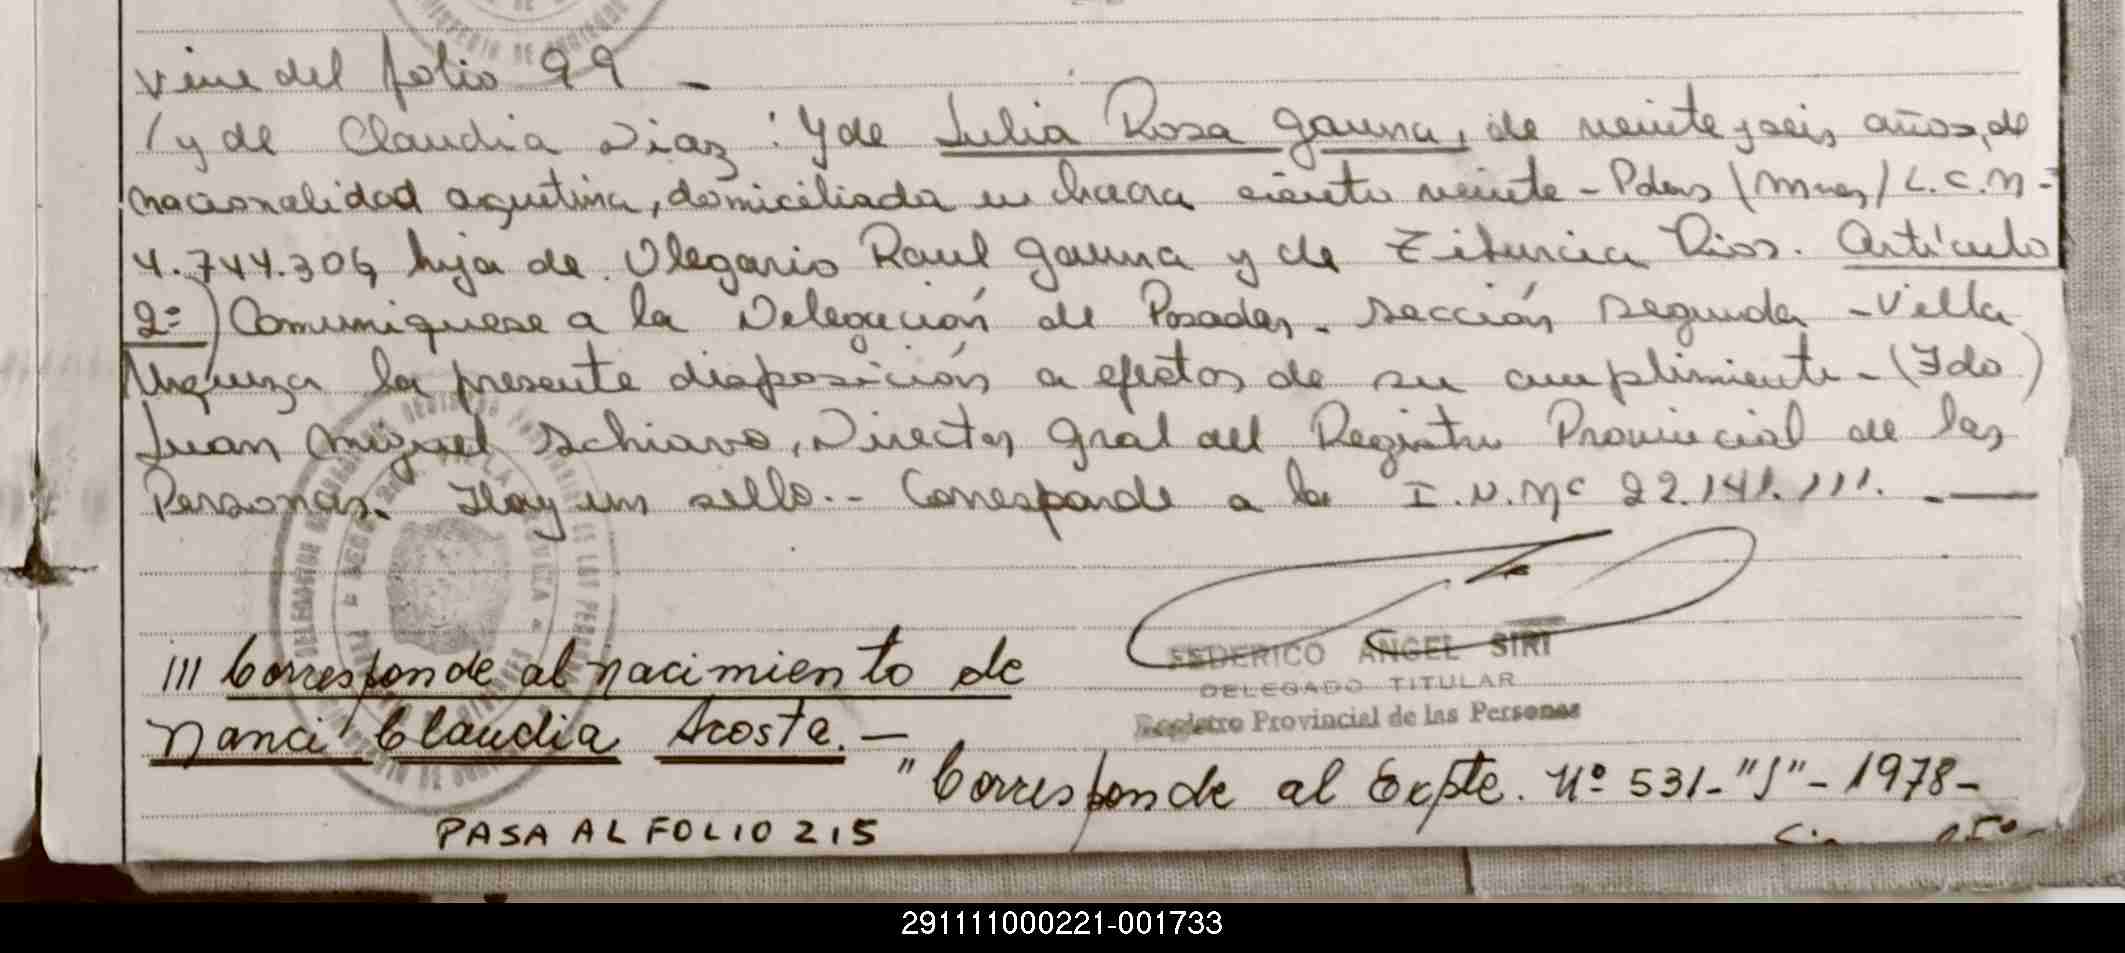 viene del folio 99 -
/y de Claudia Diaz: Y de Julia Rosa Gauna, de veinte y seis años, de
nacionalidad argentina, domiciliada en chacra ciento veinte - Pdas (Mnes) L.C.N-
4.744.306, hija de Olegario Raul Gauna y de Rios. Artículo
2º) Comuniquese a la Delegación de Posadas - sección segunda - Villa
Urquiza la presente disposición a efectos de su cumplimiento - (Fdo)
Juan Miguel Schiavo, Director Gral del Registro Provincial de las
Personas. Hay un sello.- Corresponde a la I.N.Nº 22.141.111. -
FEDERICO ANGEL SIRI
DELEGADO TITULAR
Registro Provincial de las Personas
/// Corresponde al nacimiento de
Nanci Claudia Acosta. -
"Corresponde al Expte. Nº 531-"S"-1978-
PASA AL FOLIO 215
291111000221-001733